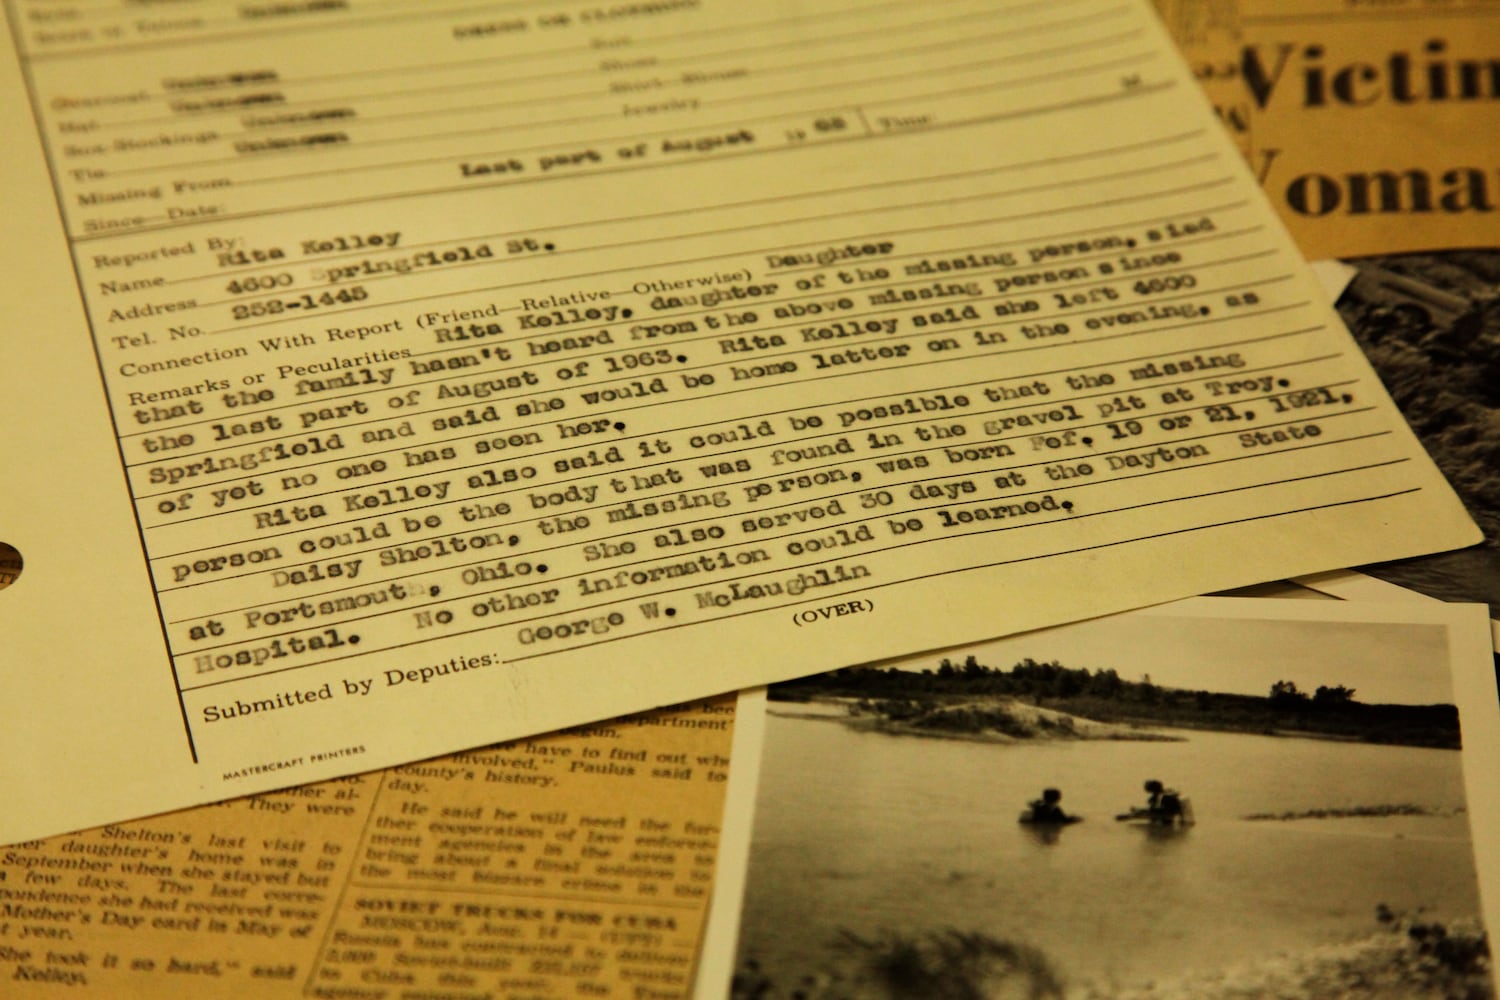 Unknown
DRESS OR CLOTHING
Overcoat Unknown Suit
Hat Unknown Shoes
Sox-Stockings Unknown Shirt-Blouse
Tie Unknown Jewelry
Missing From
Since—Date: Last part of August 19 63 Time: M
Reported By:
Name Rita Kelley
Address 4600 Springfield St.
Tel. No. 252-1445
Connection With Report (Friend—Relative—Otherwise) Daughter
Remarks or Pecularities Rita Kelley, daughter of the missing person, siad
that the family hasn't heard from the above missing person since
the last part of August of 1963. Rita Kelley said she left 4600
Springfield and said she would be home latter on in the evening, as
of yet no one has seen her.
Rita Kelley also said it could be possible that the missing
person could be the body that was found in the gravel pit at Troy.
Daisy Shelton, the missing person, was born Fef. 19 or 21, 1921,
at Portsmouth, Ohio. She also served 30 days at the Dayton State
Hospital. No other information could be learned.
Submitted by Deputies: George W. McLaughlin
(OVER)
MASTERCRAFT PRINTERS
Victim
Woma
They were
Shelton's last visit to
her daughter's home was in
September when she stayed but
a few days. The last corre-
pondence she had received was
Mother's Day card in May of
t year.
She took it so hard," said
Kelley.
department
begun.
we have to find out who
involved," Paulus said to
day.
county's history.
He said he will need the fur-
ther cooperation of law enforce-
ment agencies in the area to
bring about a final solution to
the most bizarre crime in the
SOVIET TRUCKS FOR CUBA
MOSCOW, Aug. 14 — (UPI) —
Russia has contracted to deliver
to Cuba this year, the